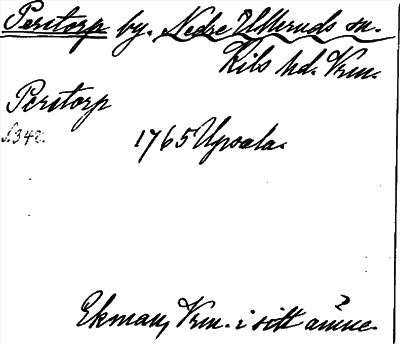 Perstorp by. Nedre Ulleruds sn.
Kils hd. Vrm.
Perstorp
s. 342.
1765 Upsala.
Ekman, Vrm. i sitt ämne.